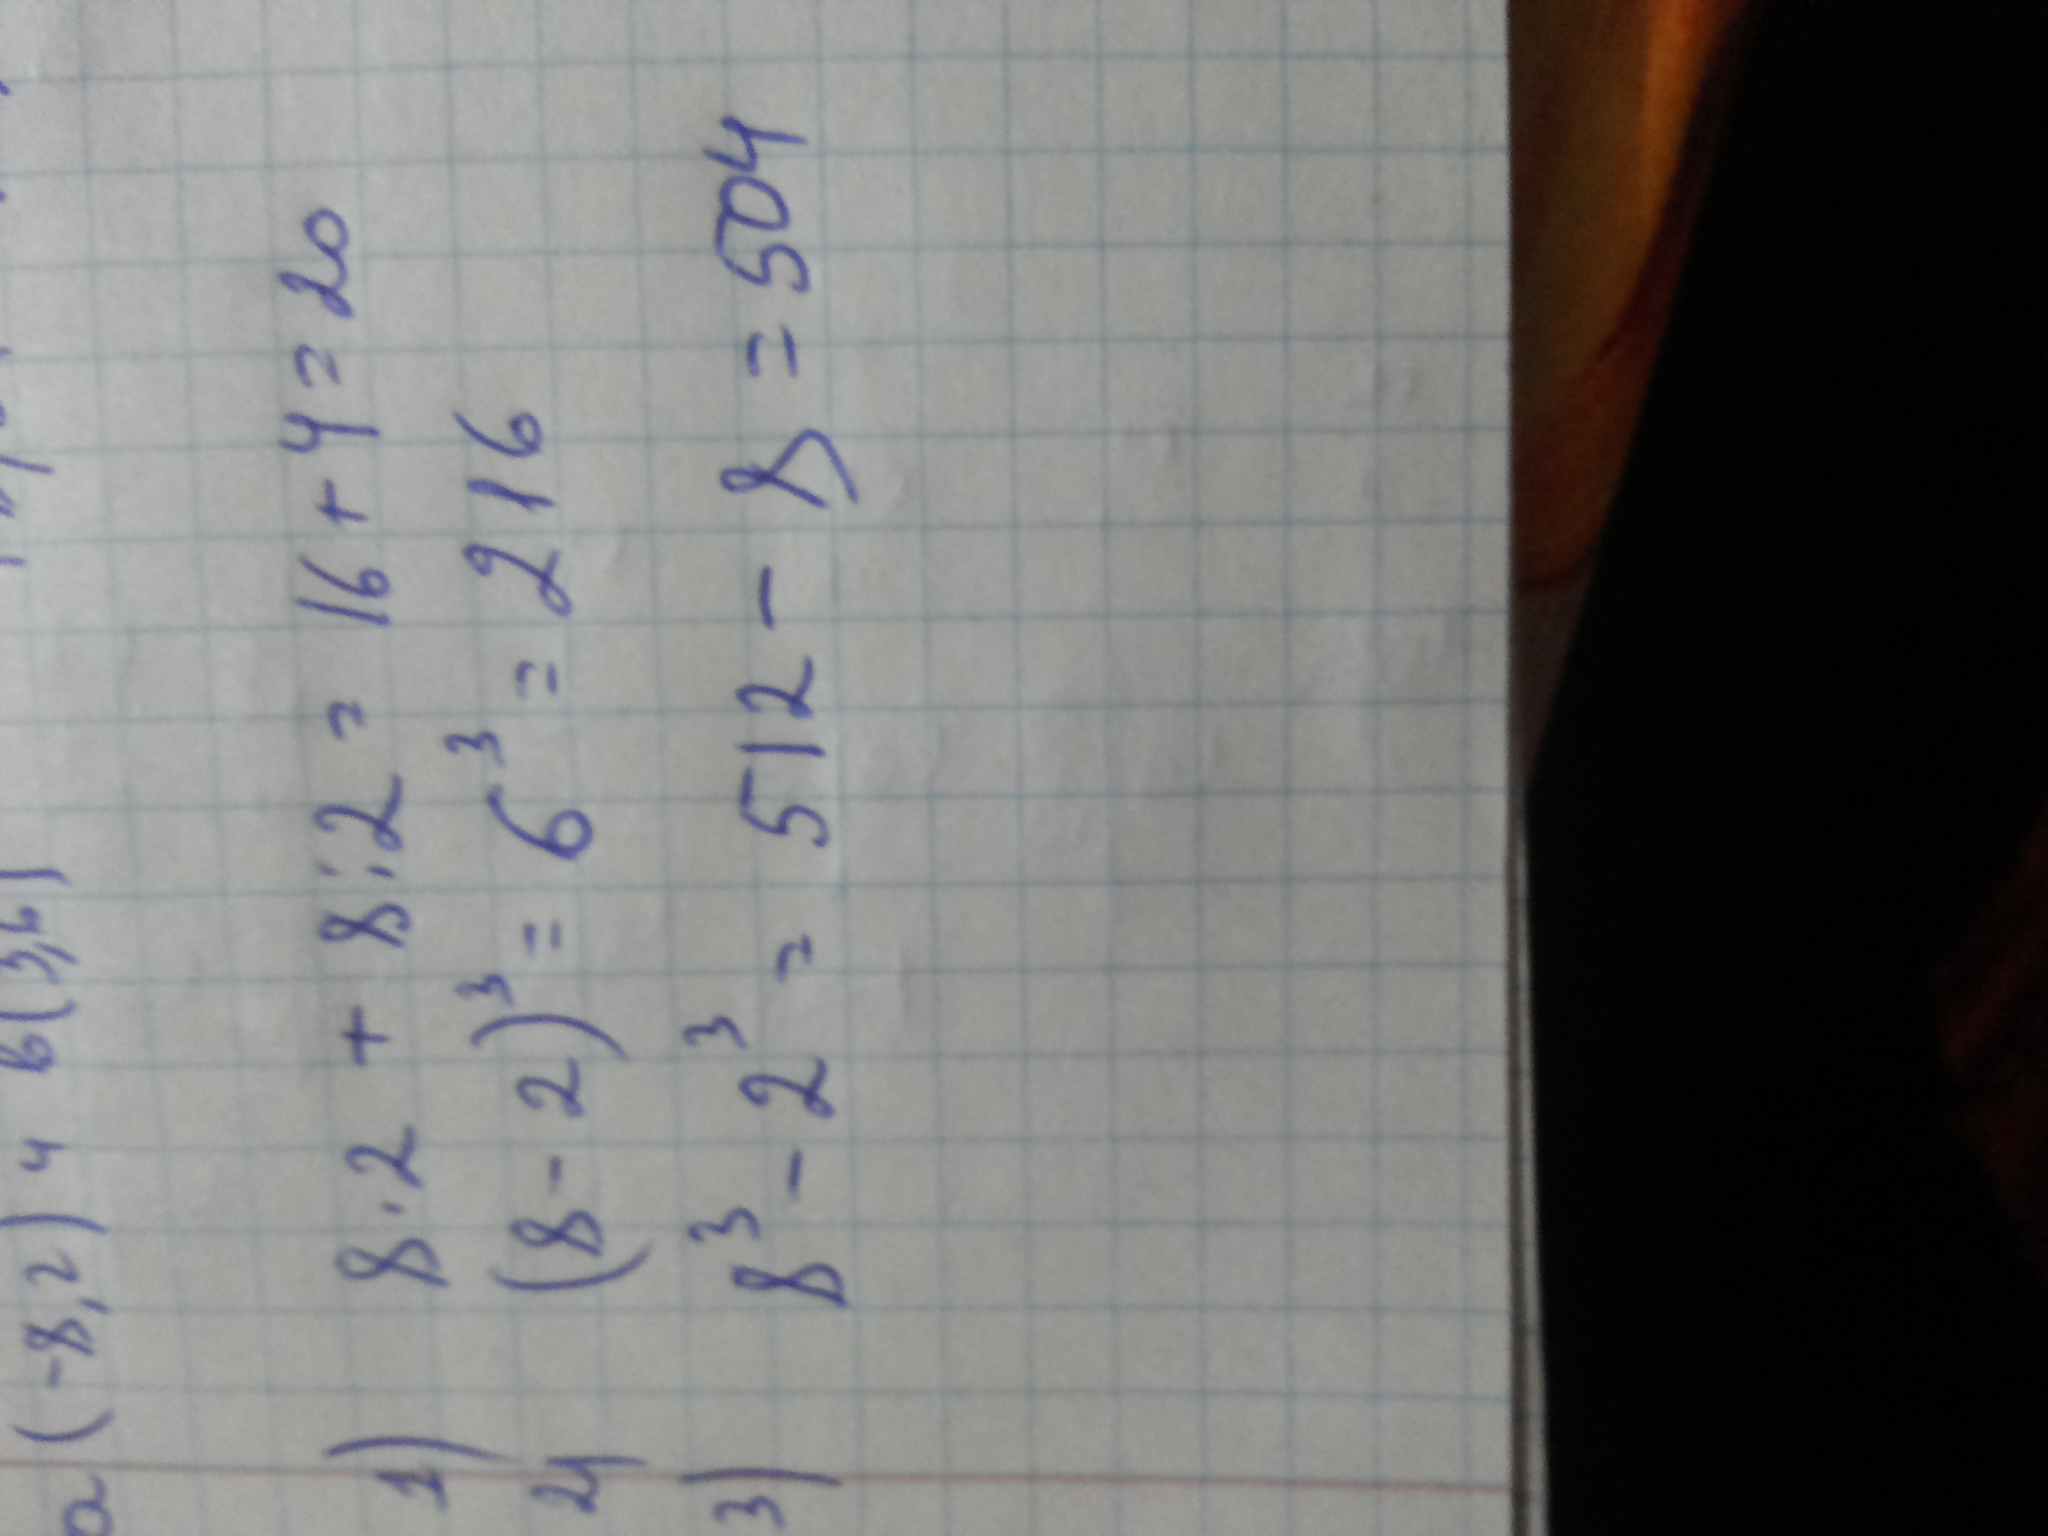 a (-8,2) и b(3,6)
1) 8·2 + 8:2 = 16 + 4 = 20
2) (8 - 2)³ = 6³ = 216
3) 8³ - 2³ = 512 - 8 = 504